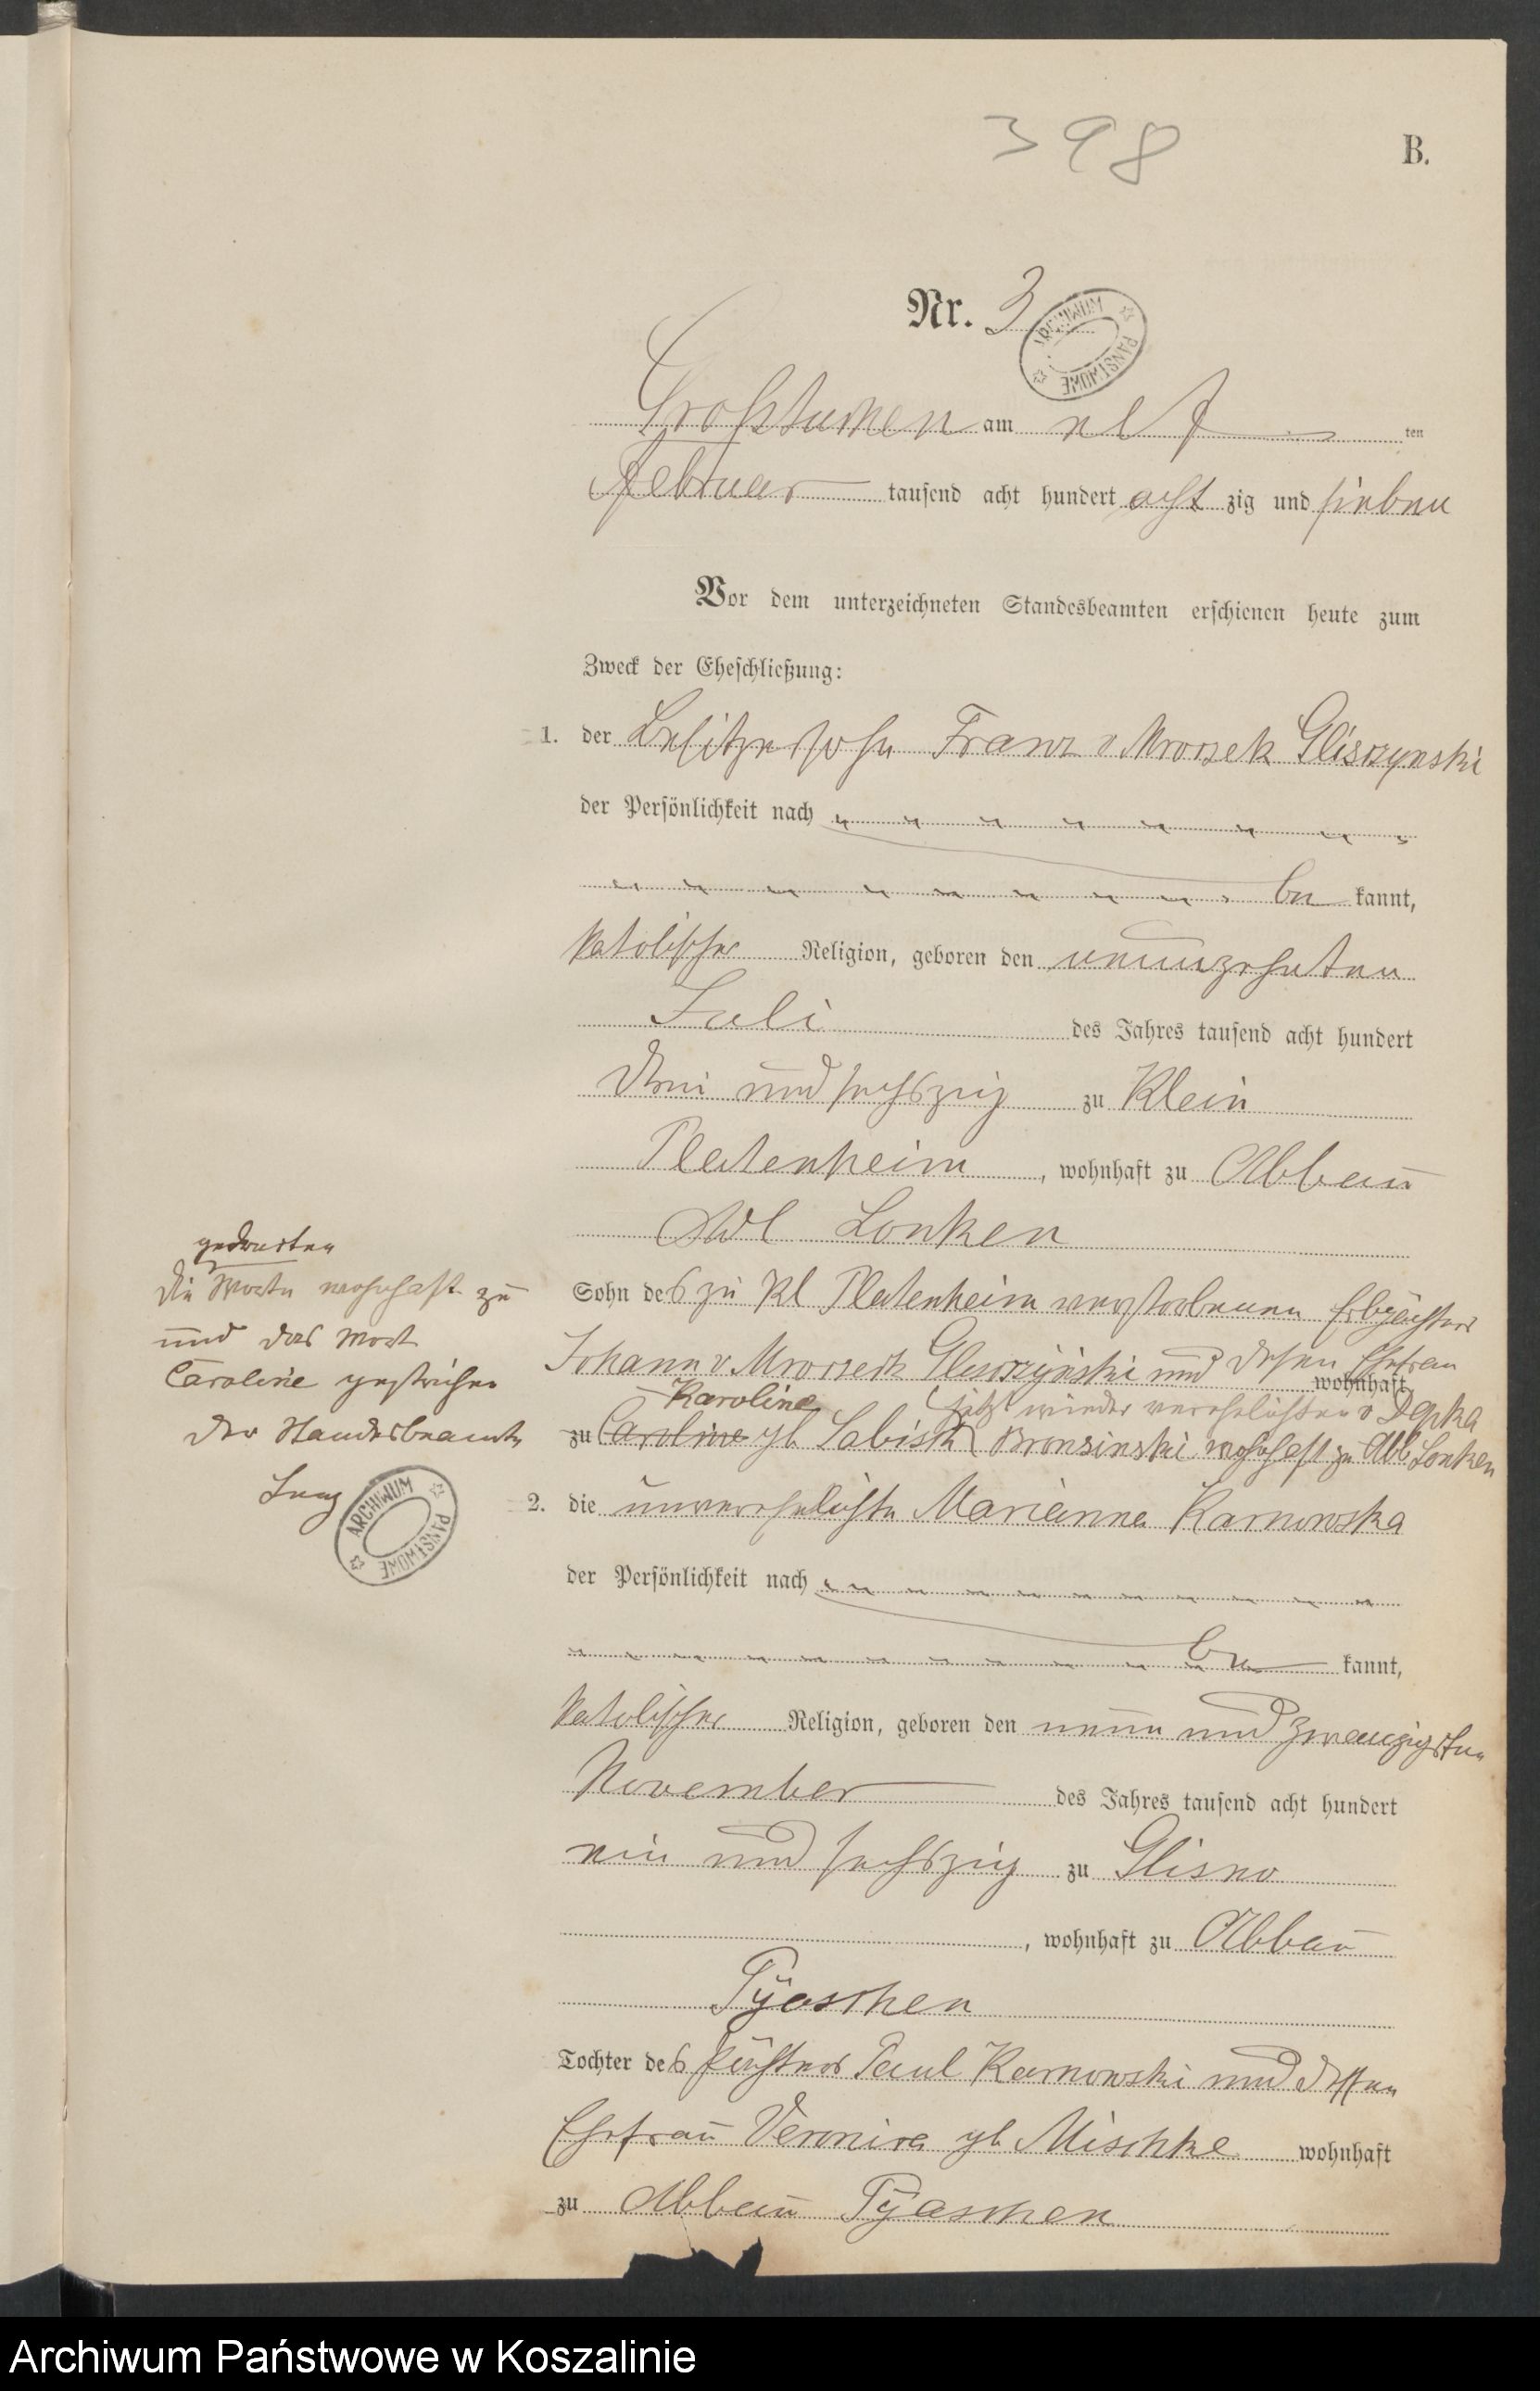 398
B.
Nr. 3
ARCHIWUM PAŃSTWOWE
Großtuchen am elf ten
Februar tausend acht hundert acht zig und sieben
Vor dem unterzeichneten Standesbeamten erschienen heute zum
Zweck der Eheschließung:
1. der Besitzersohn Franz v Mrozek Gliszynski
der Persönlichkeit nach
be kannt,
katolischer Religion, geboren den neunzehnten
Juli des Jahres tausend acht hundert
drei und sechszig zu Klein
Platenheim, wohnhaft zu Abbau
Adl Lonken
Sohn des zu Kl Platenheim verstorbenen Erbpächters
Johann v Mrozeck und dessen Ehefrau
wohnhaft
Karoline (jetzt wieder verehelichten v Depka
zu Caroline gb Labisch Bronsinski wohnhaft zu Abb Lonken
gedruckten
die Worte wohnhaft zu
und das Wort
Caroline gestrichen
Der Standesbeamte
ARCHIWUM PAŃSTWOWE
2. die unverehelichte Marianna Karnowska
der Persönlichkeit nach
be kannt,
katolischer Religion, geboren den neun und zwanzigsten
November des Jahres tausend acht hundert
ein und sechszig zu Glisno
, wohnhaft zu Abbau
Pyaschen
Tochter des Pächters Paul Karnowski und dessen
Ehefrau Veronica gb Mischke wohnhaft
zu Abbau Pyaschen
Archiwum Państwowe w Koszalinie